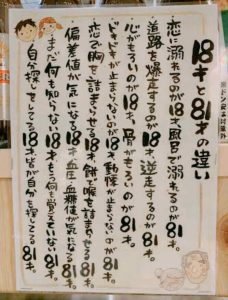 18才と81才の違い
恋に溺れるのが18才、風呂で溺れるのが81才。
道路を爆走するのが18才、逆走するのが81才。
心がもろいのが18才、骨がもろいのが81才。
ドキドキが止まらないのが18才、動悸が止まらないのが81才。
恋で胸を詰まらせる18才、餅で喉を詰まらせる81才。
偏差値が気になる18才、血圧・血糖値が気になる81才。
まだ何も知らない18才、もう何も覚えていない81才。
自分探しをしてる18才、皆が自分を探してる81才。